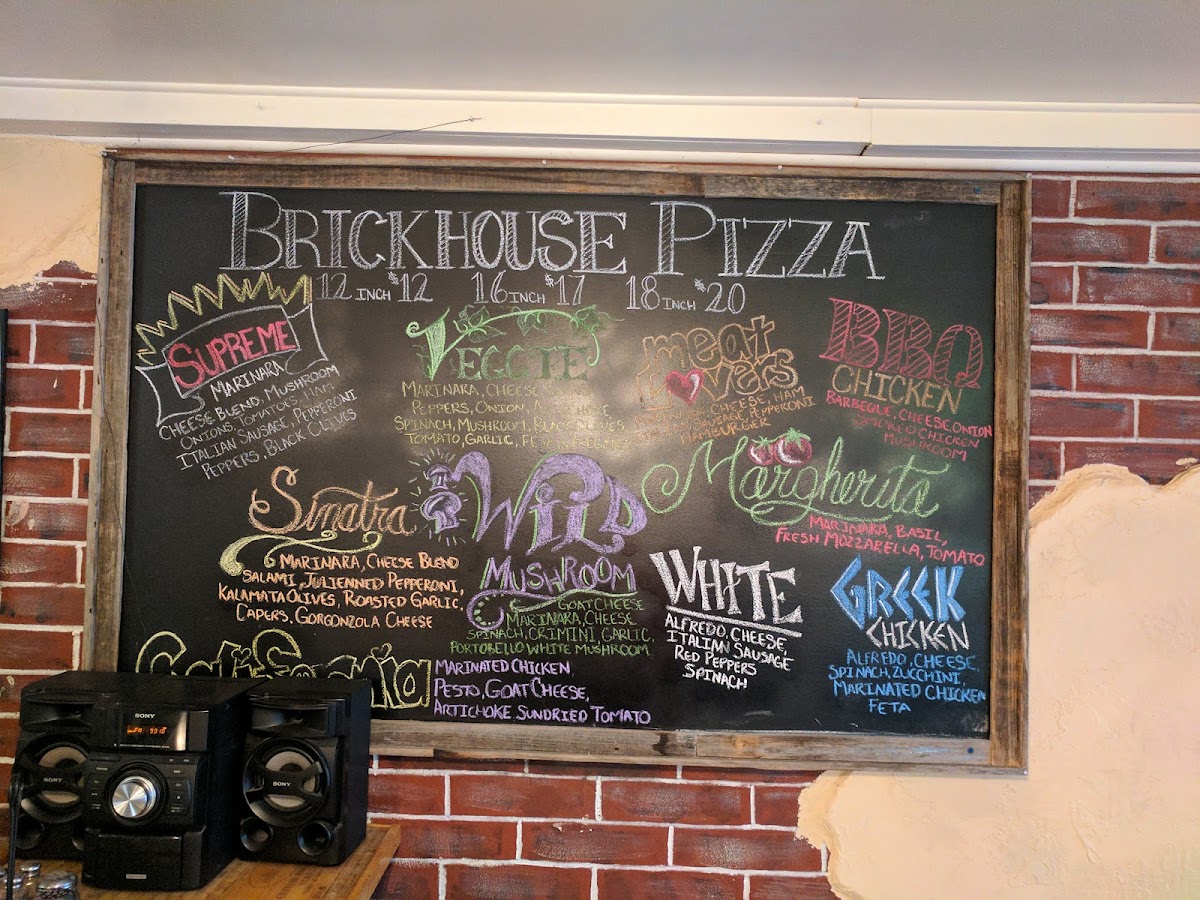 BRICKHOUSE PIZZA
12 INCH $12 16 INCH $17 18 INCH $20
SUPREME
MARINARA
CHEESE BLEND, MUSHROOM
ONIONS, TOMATOES, HAM
ITALIAN SAUSAGE, PEPPERONI
PEPPERS, BLACK OLIVES
VEGGIE
MARINARA, CHEESE
PEPPERS, ONION,
SPINACH, MUSHROOM, BLACK OLIVES
TOMATO, GARLIC,
meat
lovers
CHEESE, HAM
SAUSAGE, PEPPERONI
HAMBURGER
BBQ
CHICKEN
BARBEQUE, CHEESE, ONION
SMOKED CHICKEN
MUSHROOM
Sinatra
MARINARA, CHEESE BLEND
SALAMI, JULIENNED PEPPERONI,
KALAMATA OLIVES, ROASTED GARLIC,
CAPERS, GORGONZOLA CHEESE
WILD
MUSHROOM
GOAT CHEESE
MARINARA, CHEESE
SPINACH, CRIMINI, GARLIC,
PORTOBELLO WHITE MUSHROOM
Margherita
MARINARA, BASIL,
FRESH MOZZARELLA, TOMATO
WHITE
ALFREDO, CHEESE,
ITALIAN SAUSAGE
RED PEPPERS
SPINACH
GREEK
CHICKEN
ALFREDO, CHEESE,
SPINACH, ZUCCHINI,
MARINATED CHICKEN
FETA
California
MARINATED CHICKEN
PESTO, GOAT CHEESE,
ARTICHOKE SUNDRIED TOMATO
SONY
SONY
SONY